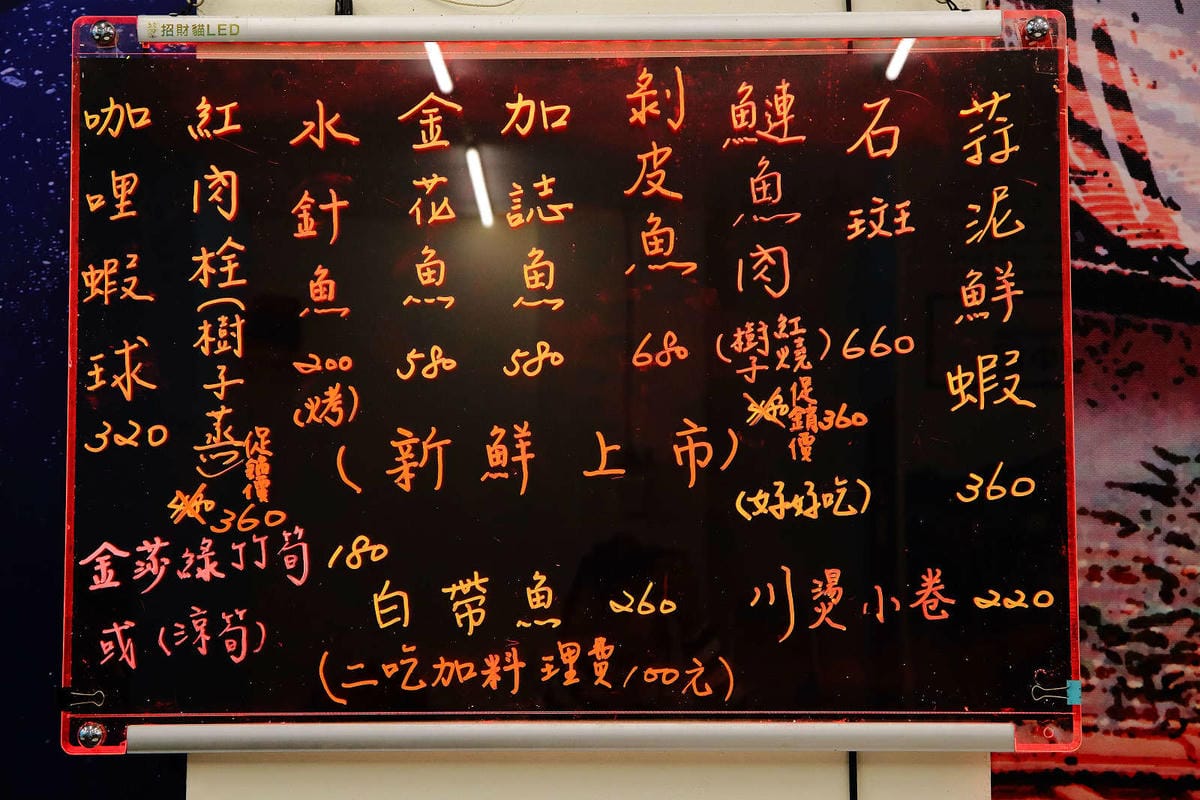 招財貓LED
蒜泥鮮蝦 360
石斑 660
鰱魚肉(紅燒 樹子) 促銷價360
(好好吃)
剝皮魚 680
加誌魚 580
金花魚 580
水針魚 200 (烤)
紅肉栓(樹子蒸) 促銷價 360
咖哩蝦球 320
(新鮮上市)
金莎綠竹筍 180
或(涼筍)
白帶魚 260
川燙小卷 220
(二吃加料理費100元)